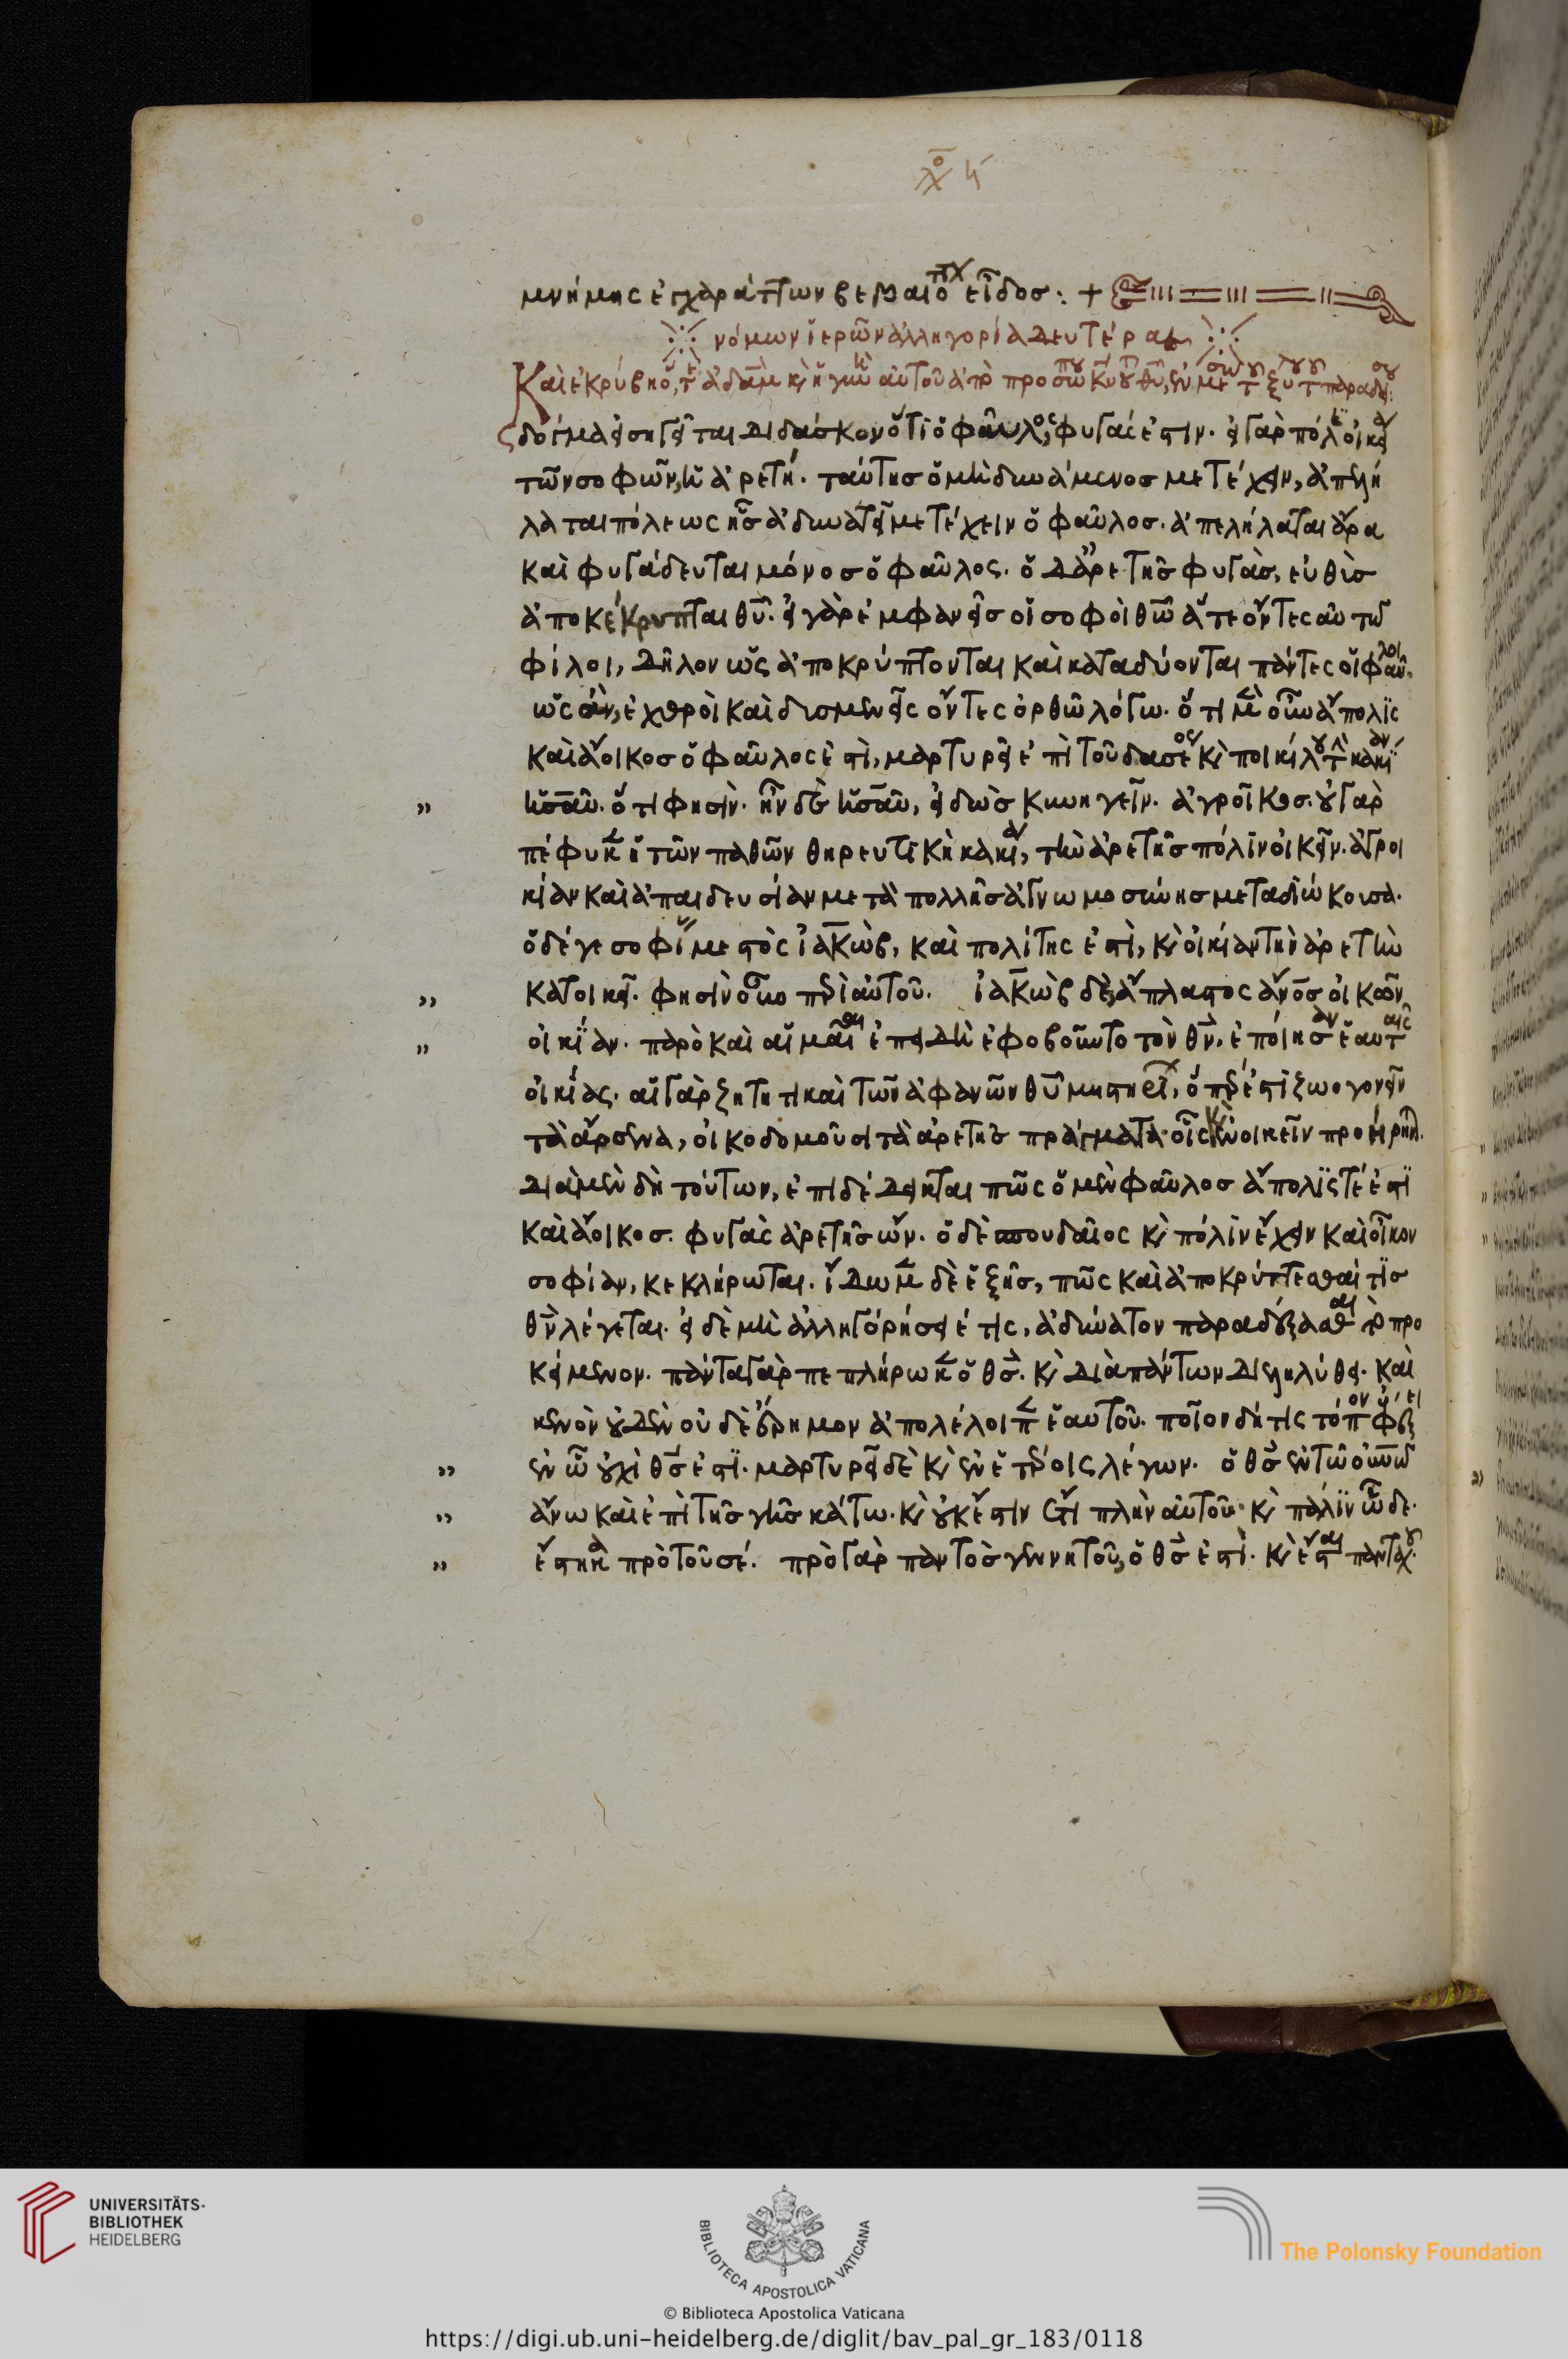 μνήμης ἐγχαράττων βεβαιοτπχ εἶδος :· +
νόμων ἱερῶν ἀλληγορία δευτέρα
Καὶ ἐκρύβη ὅ, τε ἀδὰμ κ ἡ γυνὴ αὐτοῦ ἀπὸ προσώπου κυ τοῦ θυ, ἐν μέσω τοῦ ξύλου τοῦ παραδείσου·
δόγμα εἰσηγεῖται διδάσκον ὅτι ὁ φαῦλος, φυγάς ἐστιν. εἰ γὰρ πόλις οἰκεία
τῶν σοφῶν, ἡ ἀρετή. ταύτησ ὁ μὴ δυνάμενοσ μετέχειν, ἀπελή
λαται πόλεως ἧσ ἀδυνατεῖ μετέχειν ὁ φαῦλοσ. ἀπελήλαται ἄρα
καὶ φυγάδευται μόνοσ ὁ φαῦλος. ὁ δ' ἀρετῆσ φυγὰσ, εὐθὺσ
ἀποκέκρυπται θν. εἰ γὰρ ἐμφανεῖσ οἱ σοφοὶ θω ἅτε ὄντες αὐτῶ
φίλοι, δῆλον ὡς ἀποκρύπτονται καὶ καταδύονται πάντες οἱ φαῦλοι.
ὡς ἂν, ἐχθροὶ καὶ δυσμενεῖς ὄντες ὀρθῶ λόγω. ὅτι μὲν οὖν ἄπολις
καὶ ἄοικοσ ὁ φαῦλος ἐστὶ, μαρτυρεῖ ἐπὶ τοῦ δασέος κ ποικίλου τὴν κακίαν
ἠσαῦ. ὅτι φησὶν. ἦν δὲ ἠσαῦ, εἰδὼσ κυνηγεῖν. ἀγροῖκοσ. οὐ γὰρ
πέφυκεν ἡ τῶν παθῶν θηρευτικὴ κακία, τὴν ἀρετῆσ πόλιν οἰκεῖν. ἀγροι
κίαν καὶ ἀπαιδευσίαν μετὰ πολλῆσ ἀγνωμοσύνησ μεταδιώκουσα.
ὁ δέ γε σοφίας μεστὸς ἰακὼβ, καὶ πολίτης ἐστὶ, κ οἰκίαν τὴν ἀρετὴν
κατοικεῖ. φησὶν οὖν περὶ αὐτοῦ. ἰακὼβ δὲ, ἄπλαστος ἄνοσ οἰκῶν
οἰκίαν. παρὸ καὶ αἱ μαῖαι ἐπειδὴ ἐφοβοῦντο τὸν θν, ἐποίησαν ἑαυταῖς
οἰκίας. αἱ γὰρ ζητητικαὶ τῶν ἀφανῶν θυ μυστηρίων, ὅπερ ἐστὶ ζωογονεῖν
τὰ ἄρσενα, οἰκοδομοῦσι τὰ ἀρετῆσ πράγματα οἷς ἐνοικεῖν προήρηνται.
διὰ μὲν δὴ τούτων, ἐπιδέδεικται πῶς ὁ μὲν φαῦλοσ ἄπολίς τέ ἐστι
καὶ ἄοικοσ. φυγὰς ἀρετῆσ ὤν. ὁ δὲ σπουδαῖος κ πόλιν ἔχειν καὶ οἶκον
σοφίαν, κεκλήρωται. ἴδωμεν δὲ ἑξῆσ, πῶς καὶ ἀποκρύπτεσθαί τισ
θν λέγεται. εἰ δὲ μὴ ἀλληγορήσειέ τις, ἀδύνατον παραδέξασθαι τὸ προ
κείμενον. πάντα γὰρ πεπλήρωκεν ὁ θσ. κ διὰ πάντων διεληλύθει. καὶ
κενὸν οὐδὲν οὐδὲ ἔρημον ἀπολέλοιπεν ἑαυτοῦ. ποῖον δή τις τόπον ἐφέξει
ἐν ὧ οὐχὶ θσ ἐστι. μαρτυρεῖ δὲ κ ἐν ἑτέροις λέγων. ὁ θσ ἐν τῶ οὐνῶ
ἄνω καὶ ἐπὶ τῆσ γῆσ κάτω. κ οὐκ ἔστιν ἔτι πλὴν αὐτοῦ. κ πάλιν ὧδε.
ἕστηκα πρὸ τοῦ σέ. πρὸ γὰρ παντὸσ γεννητοῦ, ὁ θσ ἐστὶ. κ ἔσται πανταχοῦ.
UNIVERSITÄTS-
BIBLIOTHEK
HEIDELBERG
BIBLIOTECA APOSTOLICA VATICANA
The Polonsky Foundation
© Biblioteca Apostolica Vaticana
https://digi.ub.uni-heidelberg.de/diglit/bav_pal_gr_183/0118